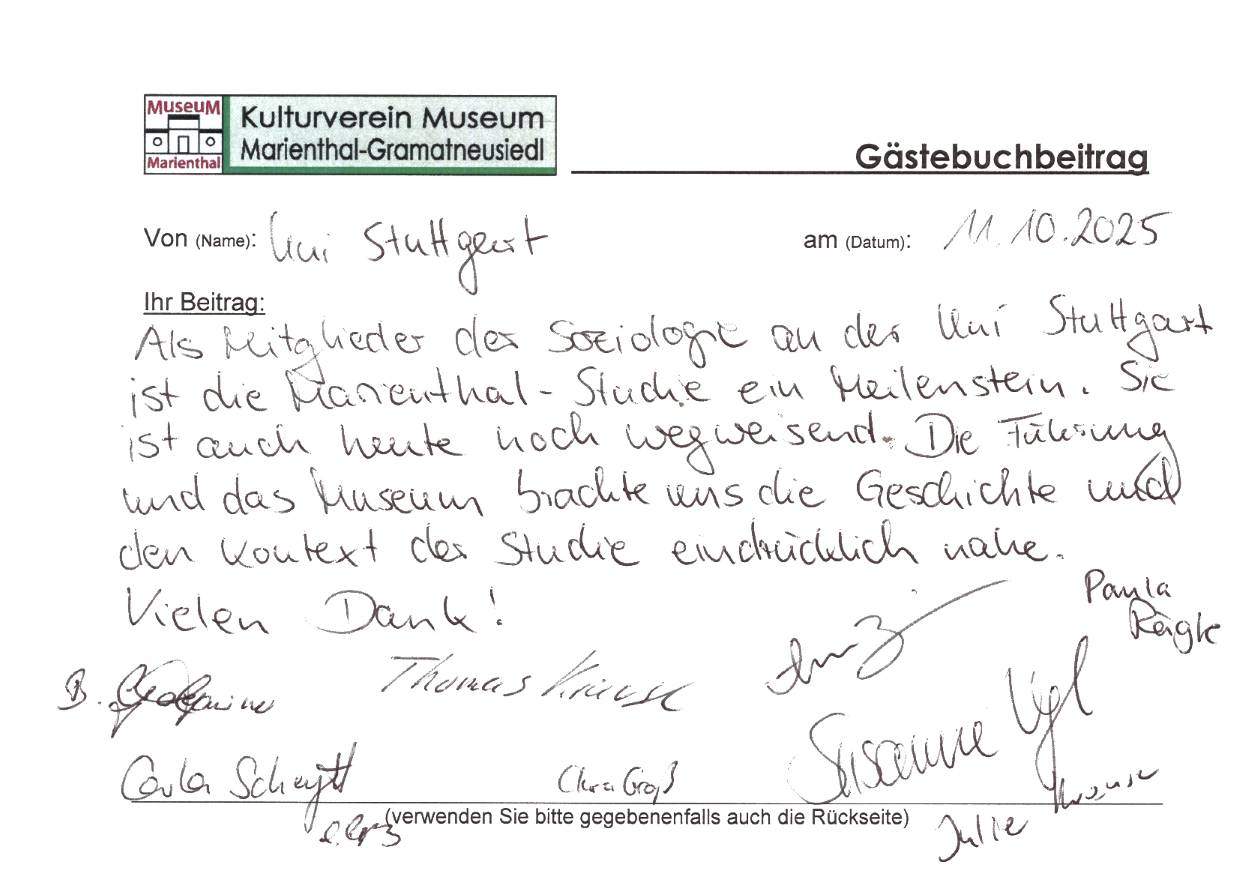 MUSEUM
Marienthal
Kulturverein Museum
Marienthal-Gramatneusiedl
Gästebuchbeitrag
Von (Name): Uni Stuttgart
am (Datum): 11.10.2025
Ihr Beitrag:
Als Mitglieder der Soziologie an der Uni Stuttgart
ist die Marienthal-Studie ein Meilenstein. Sie
ist auch heute noch wegweisend. Die Führung
und das Museum brachte uns die Geschichte und
den Kontext der Studie eindrücklich nahe.
Vielen Dank!
Paula
B.
Thomas Krause
Susanne Vogl
Carla Scheytt
Clara Groß
Julie Krause
(verwenden Sie bitte gegebenenfalls auch die Rückseite)